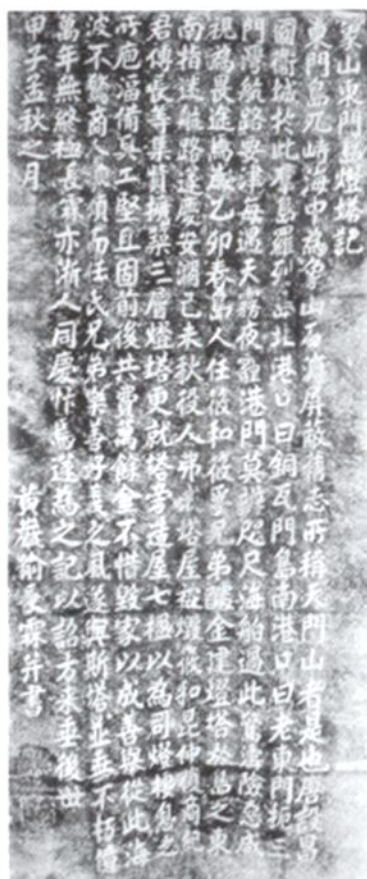 象山東門島燈塔記
東門島兀峙海中為象山石浦屏蔽舊志所稱天門山者是也唐設昌
國衛城於此羣島羅列北港口曰銅瓦門島南港口曰老東門扼三
門灣航路要津每遇天霧夜黑港門莫辨咫尺海舶過此奮遭險惡咸
視為畏途焉歲乙卯春島人任筱和筱孚兄弟醵金建燈塔於島之東
南指迷航路遂慶安瀾己未秋役人弗戒塔屋燬壞筱和昆仲願商紀
君傳宸等集貲擴築三層燈塔更就塔旁造屋七楹以為司燈棲息之
所庖湢備具工堅且固前後共費萬餘金不惜毀家以成善舉從此海
波不驚商人無損而任氏兄弟樂善好義之風遂與斯塔並垂不朽偉
萬年無終極長霖亦浙人同慶忭焉遂為之記以詔方來垂後世
甲子孟秋之月 黃巖喻長霖并書